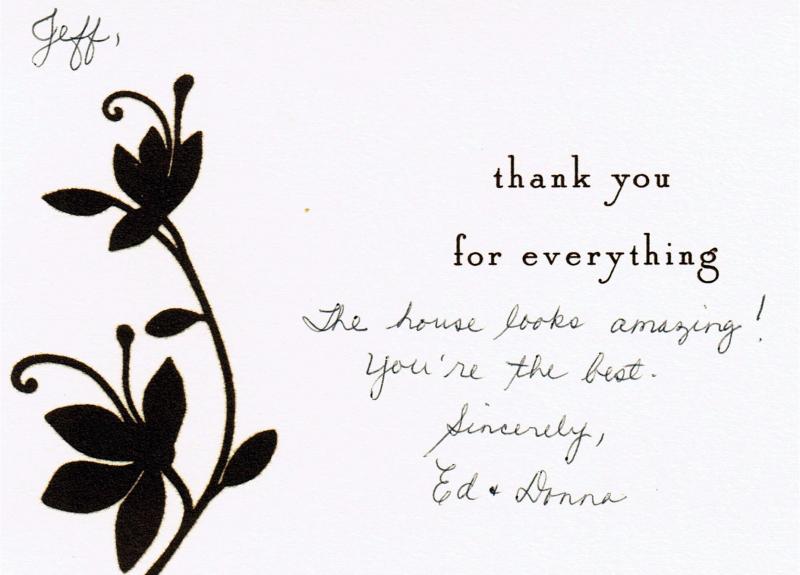 Jeff,
thank you
for everything
The house looks amazing!
You're the best.
Sincerely,
Ed + Donna